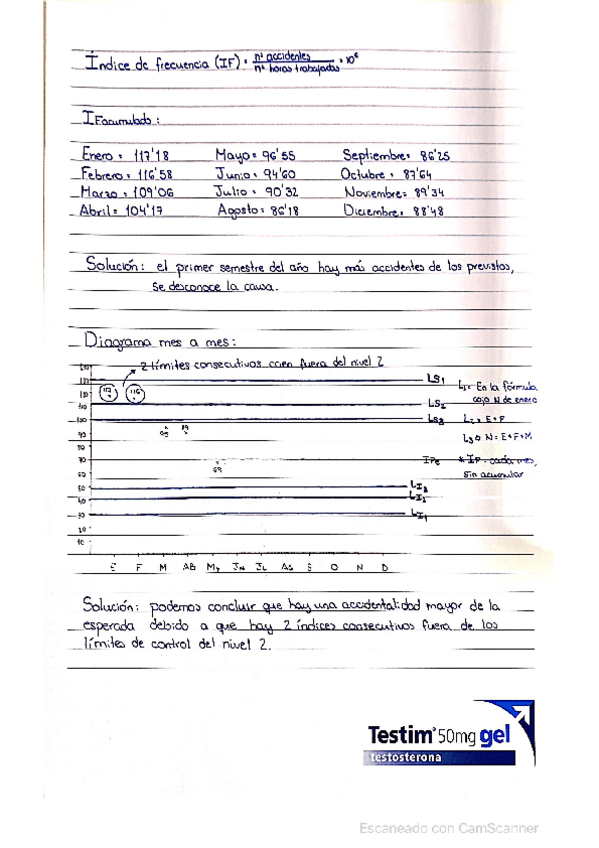 Índice de frecuencia (IF) = nº accidentes / nº horas trabajadas × 10⁶
IF acumulado:
Enero = 117'18 Mayo = 96'55 Septiembre = 86'25
Febrero = 116'58 Junio = 94'60 Octubre = 87'64
Marzo = 109'06 Julio = 90'32 Noviembre = 89'34
Abril = 104'17 Agosto = 86'18 Diciembre = 88'48
Solución: el primer semestre del año hay más accidentes de los previstos,
se desconoce la causa.
Diagrama mes a mes:
2 límites consecutivos caen fuera del nivel 2
120 LS1
110 117 116 LI = En la fórmula
cojo N de enero
LS2
100 LS3 E+F
90 N = E+F+M
IFe * IF cada mes,
69 sin acumular
LI3
LI2
LI1
E F M AB My Jn JL AG S O N D
Solución: podemos concluir que hay una accidentalidad mayor de la
esperada debido a que hay 2 índices consecutivos fuera de los
límites de control del nivel 2.
Testim 50mg gel
testosterona
Escaneado con CamScanner